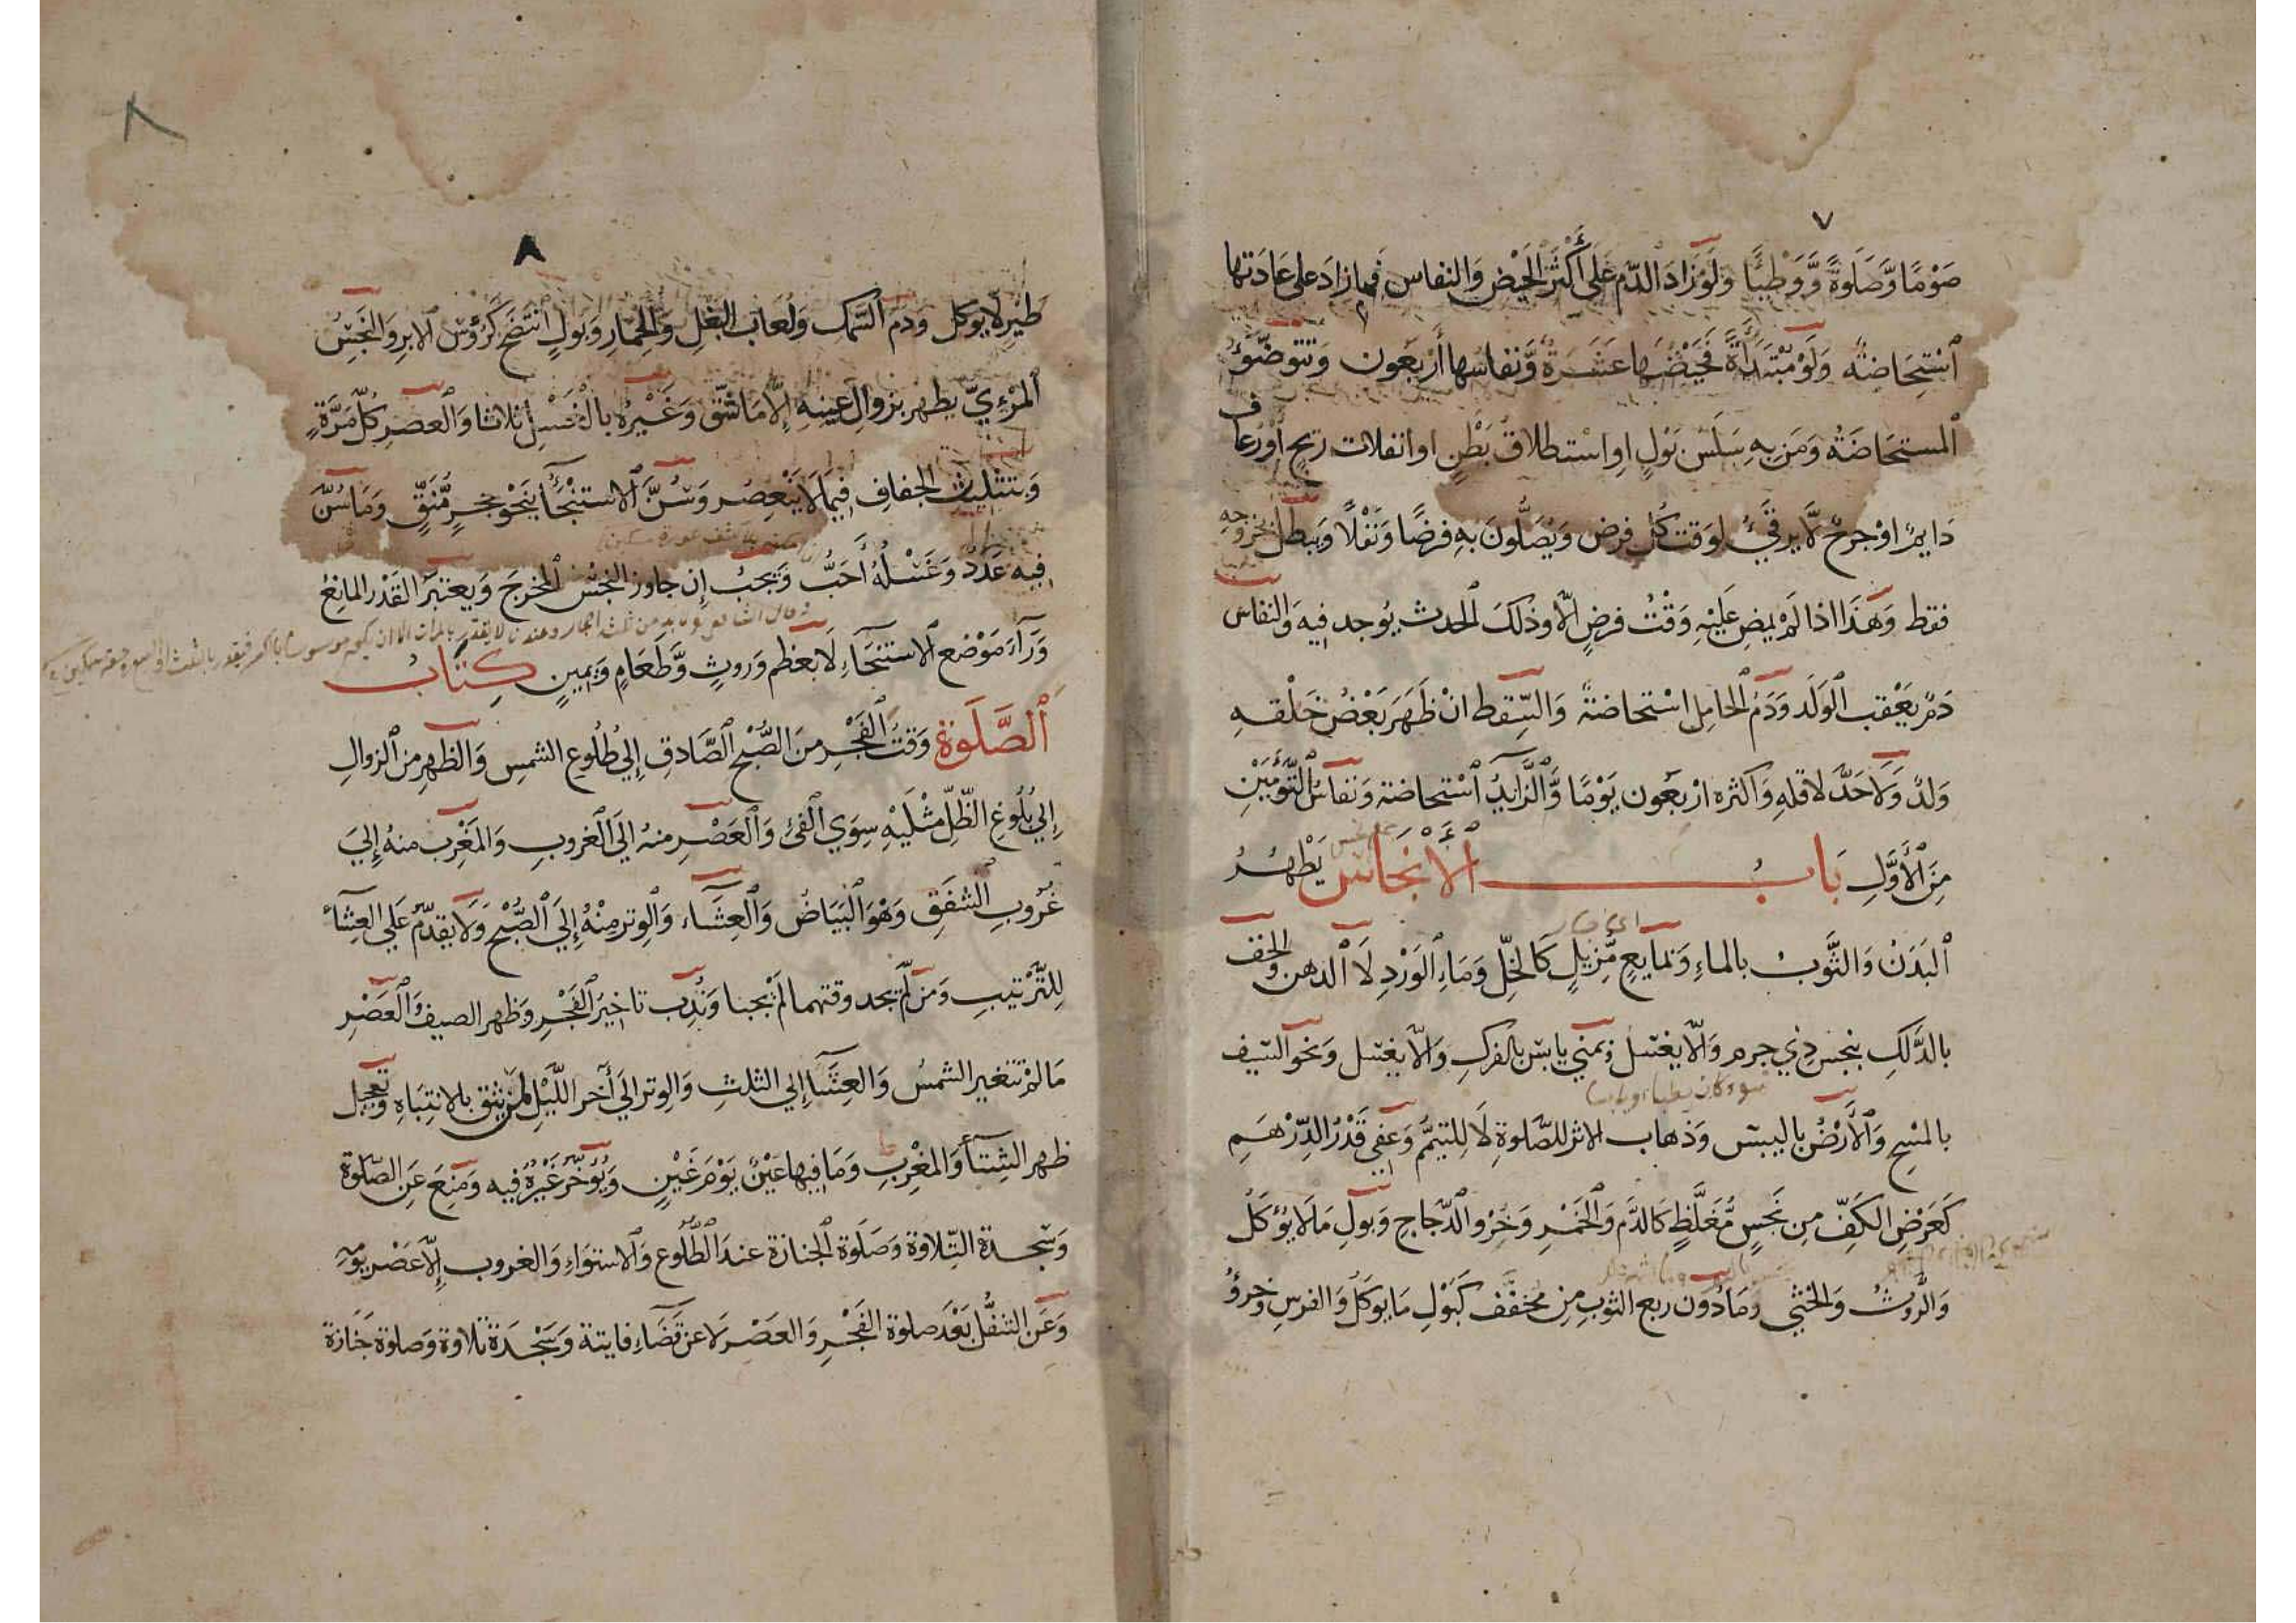 ٧
صَوْمًا وَّصَلٰوةً وَّوَطْئًا وَلَوْ زَادَ الدَّم عَلٰي أَكْثَرِ الْحَيْضِ وَالنفاس فما زادَ على عَادَتها
ٱسْتِحَاضةٌ وَلَوْ مُبْتَدَأَةً فَحَيْضُهَا عَشَرَةٌ وَّنفاسُها أَرْبَعُون وَتَتَوضَّؤُ
ٱلمستحَاضَةُ وَمَن بِهِ سَلَسُ بَوْلٍ اوِ اسْتطلاقُ بَطْنٍ او انفلات ريحٍ أَوْ رُعاف
دَايمٌ اوْ جرحٌ لَّا يرقَيُ لوَقتِ كُلِّ فرض وَيُصَلُّونَ بِهِ فرضًا وَنَفْلًا وَيبطل بخروجه
فقط وَهٰذَا اذا لَمْ يمضِ عَلَيْهِ وَقْتُ فرضٍ الّا وذلكَ الحدث يُوجد فيه وَالنفاس
دَمٌ يَعْقب الْوَلَد وَدَمُ الْحَامِل اسْتحاضةٌ وَالسِّقط انْ ظَهَرَ بَعْضُ خَلْقه
وَلدٌ وَلَا حَدَّ لاقلهِ وَاَكثره ارْبَعُون يَوْمًا وَّالزَّايدُ ٱسْتحاضة وَنفاسُ التَّوْمَيْنِ
مِنَ الْأَوَّلِ بَابُ الْأَنْجَاسِ يَطْهُرُ
ٱلبَدَنُ وَالثَّوبُ بالماءِ وَبمايعٍ مُّزِيلٍ كَالْخَلِّ وَمَاءِ الْوَرْدِ لَا ٱلدهن وَالخف
بالدَّلكِ بنجسٍ ذِي جرم وَالّا يغتسل وَبمنيٍ يابسٍ بالفركِ وَالّا يغتسل وَنحو السّيف
بالمسْحِ وَالْأَرْضُ باليبس وَذهاب الاثر للصَّلوةِ لَا لِلتيمُّم وَعفي قَدْرُ الدِّرْهَمِ
كَعَرْضِ الكَفِّ مِن نَجَسٍ مُّغَلَّظٍ كَالدَّمِ وَالْخَمْرِ وَخُرْو الدَّجاجِ وَبولِ مَا لَا يُؤكَلُ
وَالرَّوثُ وَالخثي وَمَا دُون ربع الثوبِ مِن مخفّف كَبَوْلِ مَا يوكَلُ وَالفرسِ وَخرؤُ
٨
٨
طَيْرٍ لَّا يوكل وَدم السَّمك وَلُعَاب البَغْلِ وَالْحِمَارِ وَبَولٍ انْتضَحَ كَرُؤسِ الابرِ وَالنَّجَسُ
ٱلمَرْءِيّ يطهر بزوالِ عَينِهِ إِلَّا مَا شَقَّ وَغَيْرُهُ بالْغَسْلِ ثلاثا وَالْعصر كُلَّ مَرَّةٍ
وَبتثليث الجفافِ فيما لَا يَنْعصر وَسُنَّ الاستِنْجَاءُ بنَحْوِ حَجَرٍ مُّنَقٍّ وَمَا سُنَّ
فيه عَدَدٌ وَغَسْلُهُ أَحَبُّ وَيَجبُ إِن جاوز النجسُ المخرجَ وَيعتبرُ القَدْر المانِعُ
وَرَآءَ مَوْضع الاستنجَاءِ لَا بعَظمٍ وَروثٍ وَّطَعَامٍ وَيَمِينٍ كِتَابُ
ٱلصَّلٰوة وَقتُ الْفَجْرِ مِنَ الصُّبْحِ الصَّادق إِلي طُلُوعِ الشمسِ وَالظهرِ من الزوالِ
إِلي بُلُوغِ الظِّلِّ مِثْلَيْهِ سِوَي الْفئ وَالْعَصْرِ منهُ الَي الْغروبِ وَالمَغْرِبِ منهُ إِلَيَ
غُروبِ الشفَقِ وَهْوَ الْبَيَاضُ وَالْعِشَآء وَالْوترِ مِنْهُ إِلَيَ الصُّبْحِ وَلَا يقدّمُ عَلي العِشآءِ
لِلتَّرْتيبِ وَمَن لَّمْ يجد وقتهما لَمْ يجبا وَنُدِب تاخِيرُ الْفَجْرِ وَظهر الصيف وَالْعَصْرِ
مَا لَمْ تتغير الشمسُ وَالعِشَآءِ إلي الثلثِ وَالوِتر الَي آخر اللَّيْلِ لمن يثق بالانتِبَاهِ وَتعجيل
ظهر الشِّتآءِ وَالمغْربِ وَمَا فيها عَيْنٌ يَوْمَ غَيْنٍ وَيُؤَخَّرُ غَيْرُهُ فيه وَمُنِعَ عَنِ الصَّلٰوة
وَسَجدة التِّلاوة وَصَلٰوة الْجنازة عندَ الطُّلُوع وَالاستوَاءِ وَالغروب إِلّا عَصْرَ يومه
وَعَن التنفُّل بَعْدَ صلوة الفَجْرِ وَالعصرِ لَا عن قَضَاءِ فايتة وَسَجْدَة تلاوة وَصلوة جَنَازة